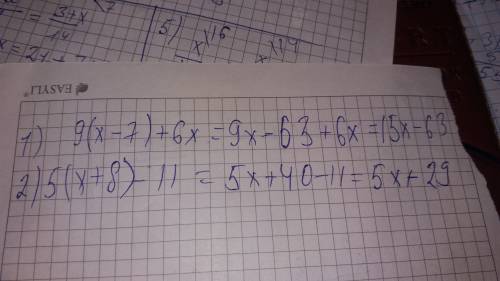 3+x
14
5)
x\16
x\14
EASYLI
1) 9(x-7)+6x=9x-63+6x=15x-63
2) 5(x+8)-11=5x+40-11=5x+29